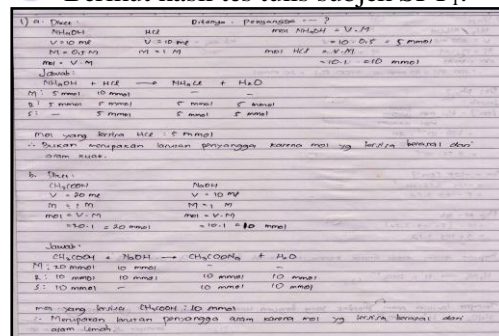 Berikut hasil tes tulis subjek
1) a. Diket : Ditanya : Penyangga --- ?
NH4OH HCl mol NH4OH = V . M
V = 10 ml V = 10 ml = 10 . 0,5 = 5 mmol
M = 0,5 M M = 1 M mol HCl = V.M
mol = V . M = 10 . 1 = 10 mmol
Jawab :
NH4OH + HCl → NH4Cl + H2O
M : 5 mmol 10 mmol - -
R : 5 mmol 5 mmol 5 mmol 5 mmol
S : - 5 mmol 5 mmol 5 mmol
mol yang tersisa HCl : 5 mmol
∴ Bukan merupakan larutan penyangga karena mol yg tersisa berasal dari
asam kuat.
b. Diket :
CH3COOH NaOH
V = 20 ml V = 10 ml
M = 1 M M = 1 M
mol = V . M mol = V . M
= 20 . 1 = 20 mmol = 10 . 1 = 10 mmol
Jawab :
CH3COOH + NaOH → CH3COONa + H2O
M : 20 mmol 10 mmol - -
R : 10 mmol 10 mmol 10 mmol 10 mmol
S : 10 mmol - 10 mmol 10 mmol
mol yang tersisa CH3COOH : 10 mmol
∴ Merupakan larutan penyangga asam karena mol yg tersisa berasal dari
asam lemah